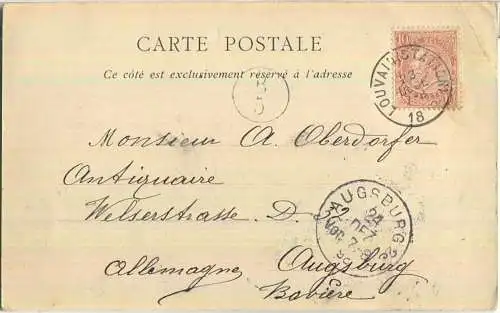 CARTE POSTALE
Ce côté est exclusivement réservé à l'adresse
10
LOUVAIN (STATION)
18
Monsieur A. Oberdorfer
Antiquaire
Welserstrasse. D.
Allemagne
Augsburg
Bavière
AUGSBURG 2
24
DEZ